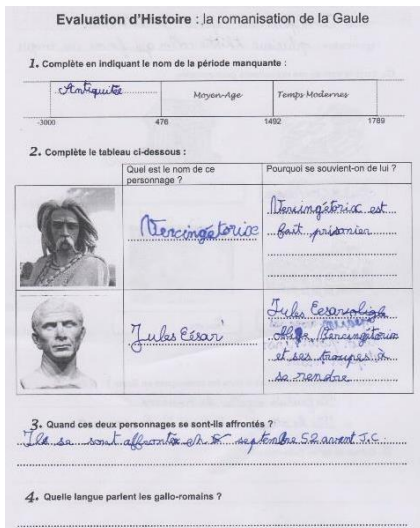 Evaluation d'Histoire : la romanisation de la Gaule
1. Complète en indiquant le nom de la période manquante :
Antiquitée
Moyen-Age
Temps Modernes
-3000
476
1492
1789
2. Complète le tableau ci-dessous :
Quel est le nom de ce
personnage ?
Pourquoi se souvient-on de lui ?
Vercingétorix
Vercingétorix est
fait prisonier
Jules César
Jules César oblige
Vercingétorix
et ses troupes à
se rendre
3. Quand ces deux personnages se sont-ils affrontés ?
Ils se sont affrontés en septembre 52 avant J.C.
4. Quelle langue parlent les gallo-romains ?